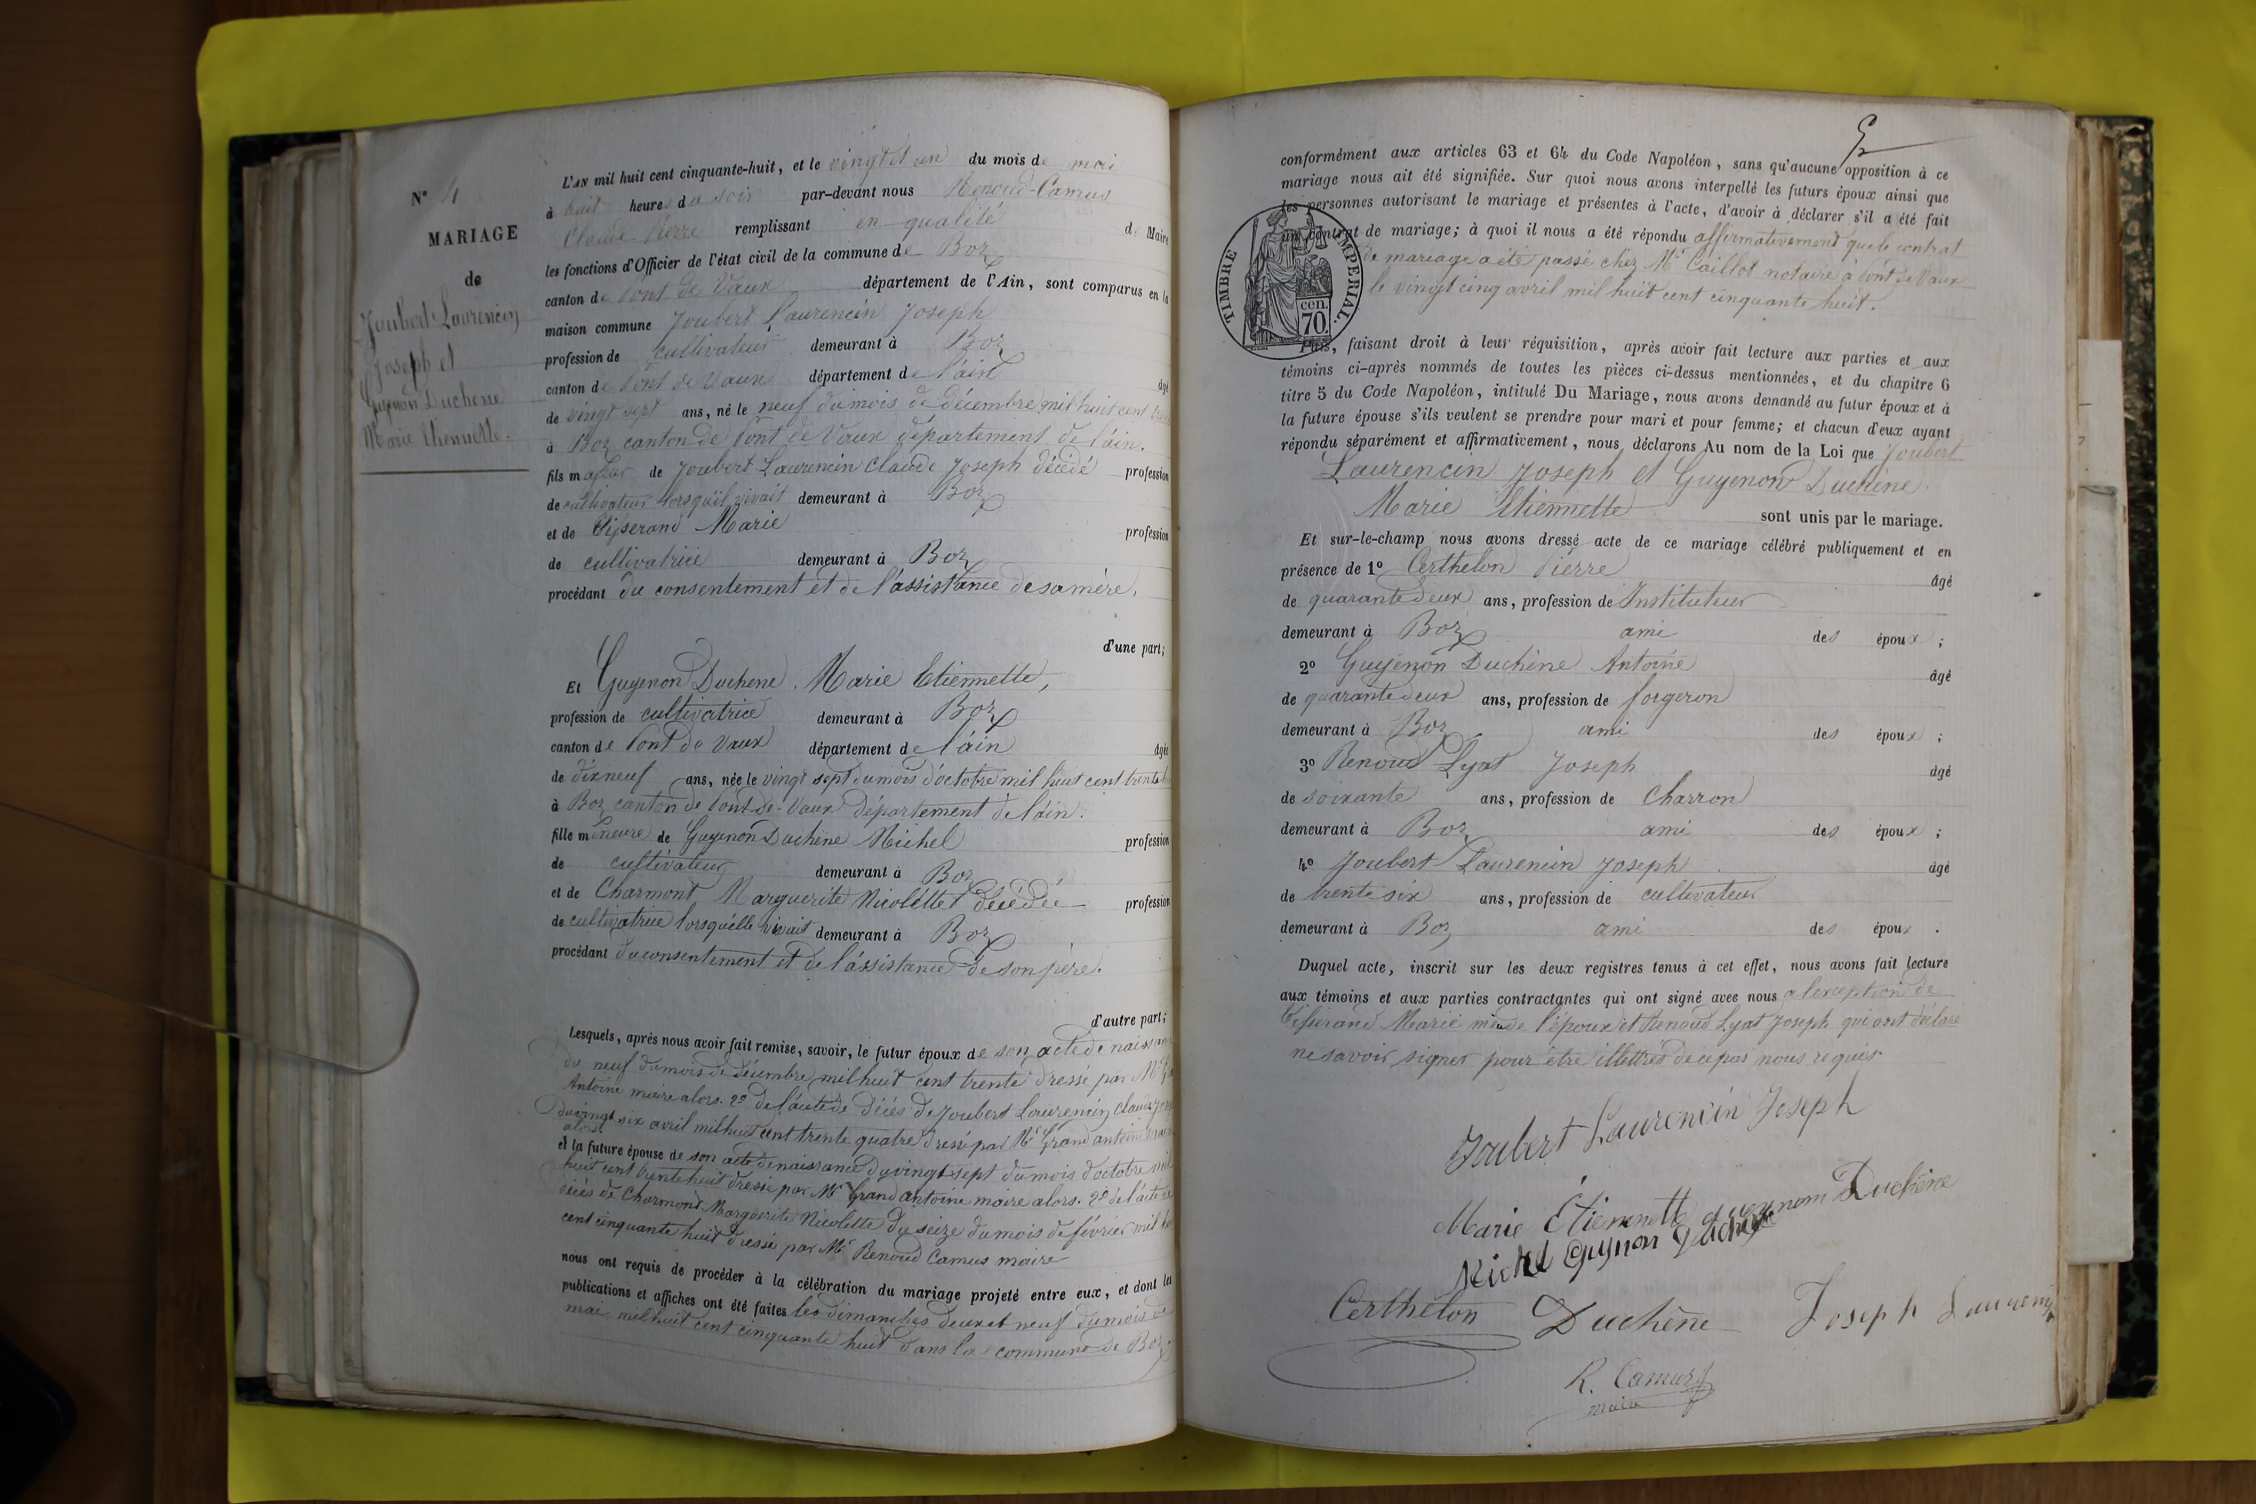 N° 4
MARIAGE
de
Joubert Laurencin
Joseph et
Guyenon Duchene
Marie Etiennette.
L'AN mil huit cent cinquante-huit, et le vingt et un du mois de mai
à huit heures du soir par-devant nous Renoud-Camus
Claude Pierre remplissant en qualité de Maire
les fonctions d'Officier de l'état civil de la commune de Boz
canton de Pont de Vaux département de l'Ain, sont comparus en la
maison commune Joubert Laurencin Joseph
profession de cultivateur demeurant à Boz
canton de Pont de Vaux département de l'ain âgé
de vingt sept ans, né le neuf du mois de décembre mil huit cent trente
à Boz canton de Pont de Vaux département de l'ain.
fils majeur de Joubert Laurencin Claude Joseph décédé profession
de cultivateur lorsqu'il vivait demeurant à Boz
et de Tisserand Marie profession
de cultivatrice demeurant à Boz
procédant du consentement et de l'assistance de sa mère.
d'une part;
Et Guyenon Duchene Marie Etiennette,
profession de cultivatrice demeurant à Boz
canton de Pont de Vaux département de l'ain âgée
de dix neuf ans, née le vingt sept du mois d'octobre mil huit cent trente
à Boz canton de Pont-de-Vaux département de l'ain.
fille mineure de Guyenon Duchène Michel profession
de cultivateur demeurant à Boz
et de Charmont Marguerite Nicolette décédée profession
de cultivatrice lorsqu'elle vivait demeurant à Boz
procédant du consentement et de l'assistance de son père.
d'autre part;
Lesquels, après nous avoir fait remise, savoir, le futur époux de son acte de naissance
du neuf du mois de décembre mil huit cent trente dressé par Mr
Antoine maire alors. 2° de l'acte de décès de Joubert Laurencin Claude
du vingt six avril mil huit cent trente quatre dressé par Mr Grand antoine maire
alors
et la future épouse de son acte de naissance du vingt sept du mois d'octobre mil
huit cent trente huit dressé par Mr Grand antoine maire alors. 2° de l'acte de
décès de Charmont Marguerite Nicolette du seize du mois de février mil
cent cinquante huit dressé par Mr Renoud Camus maire
nous ont requis de procéder à la célébration du mariage projeté entre eux, et dont les
publications et affiches ont été faites les dimanches deux et neuf du mois de
mai mil huit cent cinquante huit dans la commune de Boz
conformément aux articles 63 et 64 du Code Napoléon, sans qu'aucune opposition à ce
mariage nous ait été signifiée. Sur quoi nous avons interpellé les futurs époux ainsi que
les personnes autorisant le mariage et présentes à l'acte, d'avoir à déclarer s'il a été fait
un contrat de mariage; à quoi il nous a été répondu affirmativement que le contrat
de mariage a été passé chez Mr Caillot notaire à Pont de Vaux
le vingt cinq avril mil huit cent cinquante huit.
TIMBRE IMPERIAL.
cen.
70.
Puis, faisant droit à leur réquisition, après avoir fait lecture aux parties et aux
témoins ci-après nommés de toutes les pièces ci-dessus mentionnées, et du chapitre 6
titre 5 du Code Napoléon, intitulé Du Mariage, nous avons demandé au futur époux et à
la future épouse s'ils veulent se prendre pour mari et pour femme; et chacun d'eux ayant
répondu séparément et affirmativement, nous déclarons Au nom de la Loi que Joubert
Laurencin Joseph et Guyenon Duchène
Marie Etiennette sont unis par le mariage.
Et sur-le-champ nous avons dressé acte de ce mariage célébré publiquement et en
présence de 1° Certhelon Pierre âgé
de quarante deux ans, profession de Instituteur
demeurant à Boz ami des époux;
2° Guyenon Duchène Antoine âgé
de quarante deux ans, profession de forgeron
demeurant à Boz ami des époux;
3° Renoud Lyat Joseph âgé
de soixante ans, profession de Charron
demeurant à Boz ami des époux;
4° Joubert Laurencin Joseph âgé
de trente six ans, profession de cultivateur
demeurant à Boz ami des époux.
Duquel acte, inscrit sur les deux registres tenus à cet effet, nous avons fait lecture
aux témoins et aux parties contractantes qui ont signé avec nous à l'exception de
Tisserand Marie mère de l'époux et Renoud Lyat Joseph qui ont déclaré
ne savoir signer pour être illettrés de ce pas nous requis.
Joubert Laurencin Joseph
Marie Étiennette guyenom Duchène
Michel Guynon Duchene
Certhelon Duchêne Joseph Laurencin
R. Camus
maire